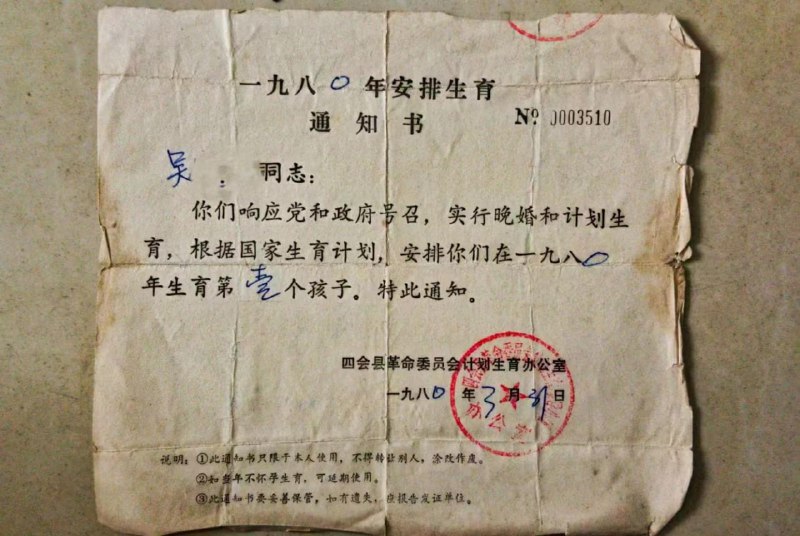 一九八0年安排生育
通知书
№ 0003510
吴 同志：
你们响应党和政府号召，实行晚婚和计划生
育，根据国家生育计划，安排你们在一九八0
年生育第壹个孩子。特此通知。
四会县革命委员会计划生育办公室
一九八0年3月31日
说明：①此通知书只限于本人使用，不得转让别人，涂改作废。
②如当年不怀孕生育，可延期使用。
③此通知书要妥善保管，如有遗失，应报告发证单位。